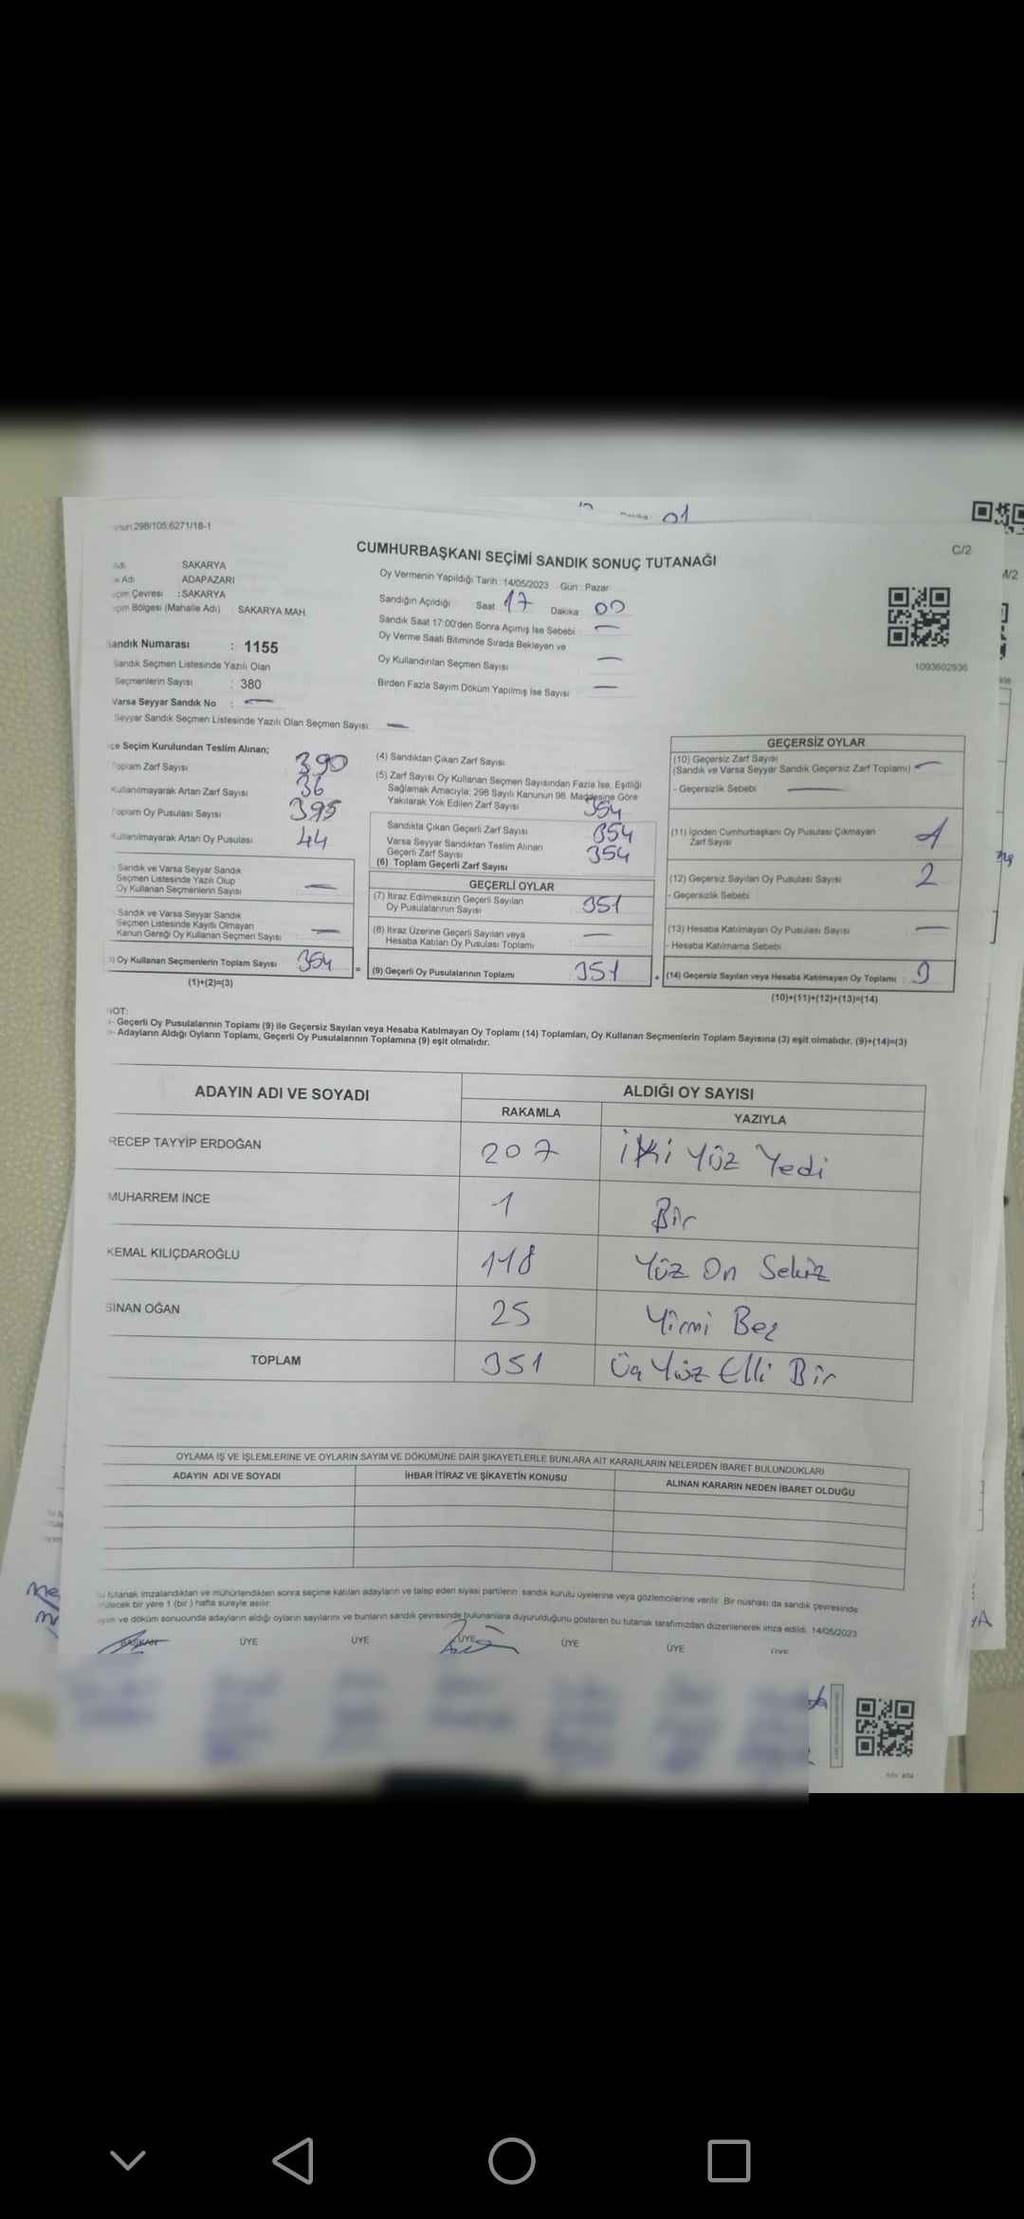 01
298/105;6271/18-1
C/2
CUMHURBAŞKANI SEÇİMİ SANDIK SONUÇ TUTANAĞI
Adı SAKARYA
Adı ADAPAZARI
Çevresi : SAKARYA
Bölgesi (Mahalle Adı) SAKARYA MAH.
Oy Vermenin Yapıldığı Tarih : 14/05/2023 Gün : Pazar
Sandığın Açıldığı Saat 17 Dakika 00
Sandık Saat 17:00'den Sonra Açımış İse Sebebi —
Oy Verme Saati Bitiminde Sırada Bekleyen ve
Oy Kullandırılan Seçmen Sayısı —
Birden Fazla Sayım Döküm Yapılmış İse Sayısı —
1093602936
Sandık Numarası : 1155
Sandık Seçmen Listesinde Yazılı Olan
Seçmenlerin Sayısı : 380
Varsa Seyyar Sandık No : —
Seyyar Sandık Seçmen Listesinde Yazılı Olan Seçmen Sayısı —
Seçim Kurulundan Teslim Alınan;
Toplam Zarf Sayısı 390
Kullanılmayarak Artan Zarf Sayısı 36
Toplam Oy Pusulası Sayısı 395
Kullanılmayarak Artan Oy Pusulası 44
Sandık ve Varsa Seyyar Sandık
Seçmen Listesinde Yazılı Olup
Oy Kullanan Seçmenlerin Sayısı —
Sandık ve Varsa Seyyar Sandık
Seçmen Listesinde Kayıtlı Olmayan
Kanun Gereği Oy Kullanan Seçmen Sayısı —
) Oy Kullanan Seçmenlerin Toplam Sayısı 354
(1)+(2)=(3)
(4) Sandıktan Çıkan Zarf Sayısı
(5) Zarf Sayısı Oy Kullanan Seçmen Sayısından Fazla İse, Eşitliği
Sağlamak Amacıyla; 298 Sayılı Kanunun 98. Maddesine Göre
Yakılarak Yok Edilen Zarf Sayısı 354
Sandıkta Çıkan Geçerli Zarf Sayısı 354
Varsa Seyyar Sandıktan Teslim Alınan
Geçerli Zarf Sayısı 354
(6) Toplam Geçerli Zarf Sayısı
GEÇERLİ OYLAR
(7) İtiraz Edilmeksizin Geçerli Sayılan
Oy Pusulalarının Sayısı 351
(8) İtiraz Üzerine Geçerli Sayılan veya
Hesaba Katılan Oy Pusulası Toplamı —
= (9) Geçerli Oy Pusulalarının Toplamı 351
GEÇERSİZ OYLAR
(10) Geçersiz Zarf Sayısı
(Sandık ve Varsa Seyyar Sandık Geçersiz Zarf Toplamı) —
- Geçersizlik Sebebi —
(11) İçinden Cumhurbaşkanı Oy Pusulası Çıkmayan
Zarf Sayısı 1
(12) Geçersiz Sayılan Oy Pusulası Sayısı 2
- Geçersizlik Sebebi
(13) Hesaba Katılmayan Oy Pusulası Sayısı —
- Hesaba Katılmama Sebebi
(14) Geçersiz Sayılan veya Hesaba Katılmayan Oy Toplamı : 3
(10)+(11)+(12)+(13)=(14)
NOT:
- Geçerli Oy Pusulalarının Toplamı (9) ile Geçersiz Sayılan veya Hesaba Katılmayan Oy Toplamı (14) Toplamları, Oy Kullanan Seçmenlerin Toplam Sayısına (3) eşit olmalıdır. (9)+(14)=(3)
- Adayların Aldığı Oyların Toplamı, Geçerli Oy Pusulalarının Toplamına (9) eşit olmalıdır.
ADAYIN ADI VE SOYADI ALDIĞI OY SAYISI
RAKAMLA YAZIYLA
RECEP TAYYİP ERDOĞAN 207 İki Yüz Yedi
MUHARREM İNCE 1 Bir
KEMAL KILIÇDAROĞLU 118 Yüz On Sekiz
SİNAN OĞAN 25 Yirmi Beş
TOPLAM 351 Üç Yüz Elli Bir
OYLAMA İŞ VE İŞLEMLERİNE VE OYLARIN SAYIM VE DÖKÜMÜNE DAİR ŞİKAYETLERLE BUNLARA AİT KARARLARIN NELERDEN İBARET BULUNDUKLARI
ADAYIN ADI VE SOYADI İHBAR İTİRAZ VE ŞİKAYETİN KONUSU ALINAN KARARIN NEDEN İBARET OLDUĞU
tutanak imzalandıktan ve mühürlendikten sonra seçime katılan adayların ve talep eden siyasi partilerin sandık kurulu üyelerine veya gözlemcilerine verilir. Bir nüshası da sandık çevresinde
bir yere 1 (bir) hafta süreyle asılır.
ve döküm sonucunda adayların aldığı oyların sayılarını ve bunların sandık çevresinde bulunanlara duyurulduğunu gösteren bu tutanak tarafımızdan düzenlenerek imza edildi. 14/05/2023
BAŞKAN ÜYE ÜYE ÜYE ÜYE ÜYE ÜYE